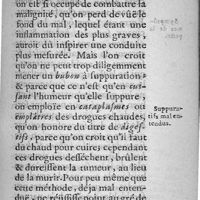 on est si occupé de combattre la
malignité, qu'on perd de vuë le
fond du mal, lequel étant une
inflammation des plus graves,
auroit dû inspirer une conduite
plus mesurée. Mais l'on croit
qu'on ne peut trop diligemment
mener un bubon à suppuration:
& parce que ce n'est qu'en cui-
sant l'humeur qu'elle suppure,
on emploie en cataplasmes ou
emplâtres des drogues chaudes,
qu'on honore du titre de diges-
tifs, parce qu'on croit qu'il faut
du chaud pour cuire; cependant
ces drogues dessèchent, brûlent
& durcissent la tumeur, au lieu
de la meurir. Pour peu même que
cette méthode, déja mal enten-
duë, ne réüssisse point au gré de
Suppura-
tifs mal en-
tendus.